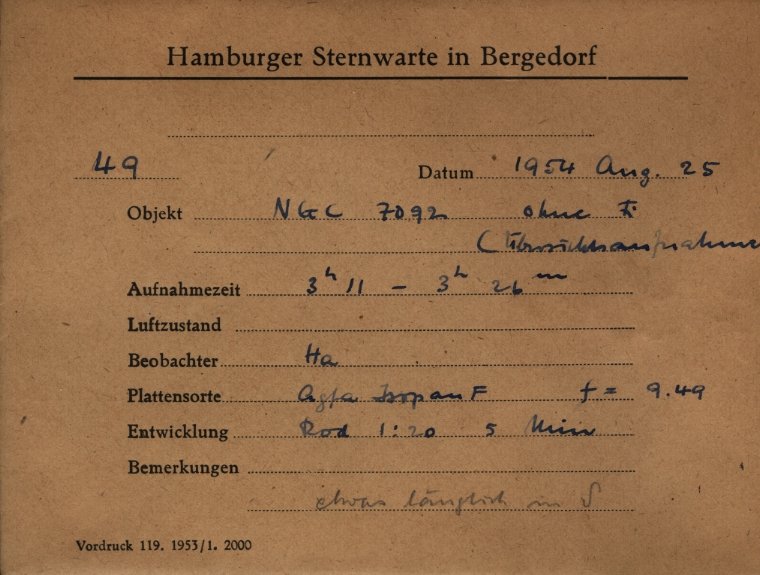 Hamburger Sternwarte in Bergedorf
49 Datum 1954 Aug. 25
Objekt NGC 7092 ohne Fi
(Übersichtsaufnahme
Aufnahmezeit 3h 11 – 3h 26m
Luftzustand
Beobachter Ha
Plattensorte Agfa Isopan F f = 9.49
Entwicklung Rod 1:20 5 Min
Bemerkungen
etwas länglich in δ
Vordruck 119. 1953/1. 2000